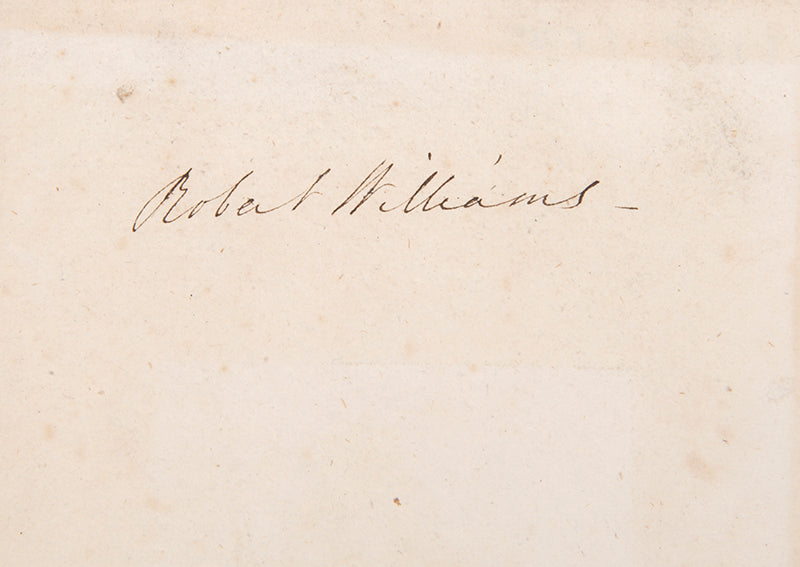 Robert Williams –